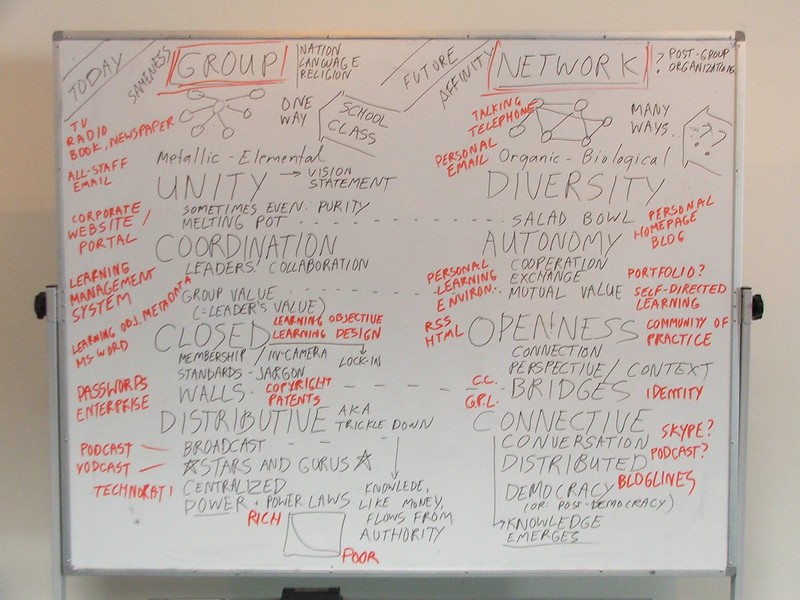 TODAY
SAMENESS
GROUP
NATION
LANGUAGE
RELIGION
TV
RADIO
BOOK, NEWSPAPER
ALL-STAFF
EMAIL
ONE
WAY
SCHOOL
CLASS
Metallic - Elemental
UNITY → VISION
STATEMENT
SOMETIMES EVEN: PURITY
MELTING POT
CORPORATE
WEBSITE /
PORTAL
COORDINATION
LEADERS! COLLABORATION
LEARNING
MANAGEMENT
SYSTEM
GROUP VALUE
(=LEADER'S VALUE)
LEARNING OBJ. METADATA
MS-WORD
CLOSED
LEARNING OBJECTIVE
LEARNING DESIGN
LOCK-IN
MEMBERSHIP / IN-CAMERA
STANDARDS - JARGON
PASSWORDS
ENTERPRISE
WALLS
COPYRIGHT
PATENTS
DISTRIBUTIVE AKA
TRICKLE DOWN
PODCAST
VODCAST
TECHNORATI
BROADCAST
☆STARS AND GURUS☆
CENTRALIZED
POWER. POWER LAWS
RICH
POOR
KNOWLEDE,
LIKE MONEY,
FLOWS FROM
AUTHORITY
FUTURE
AFFINITY
NETWORK
? POST-GROUP
ORGANIZATIONS
TALKING
TELEPHONE
PERSONAL
EMAIL
MANY
WAYS.
???
Organic - Biological
DIVERSITY
SALAD BOWL
PERSONAL
HOMEPAGE
BLOG
AUTONOMY
COOPERATION
EXCHANGE
MUTUAL VALUE
PERSONAL
LEARNING
ENVIRON.
PORTFOLIO?
SELF-DIRECTED
LEARNING
RSS
HTML
OPENNESS
COMMUNITY OF
PRACTICE
CONNECTION
PERSPECTIVE / CONTEXT
C.C.
G.P.L.
BRIDGES
IDENTITY
CONNECTIVE
CONVERSATION
SKYPE?
DISTRIBUTED
PODCAST?
DEMOCRACY
BLOGLINES
(OR: POST-DEMOCRACY)
→KNOWLEDGE
EMERGES